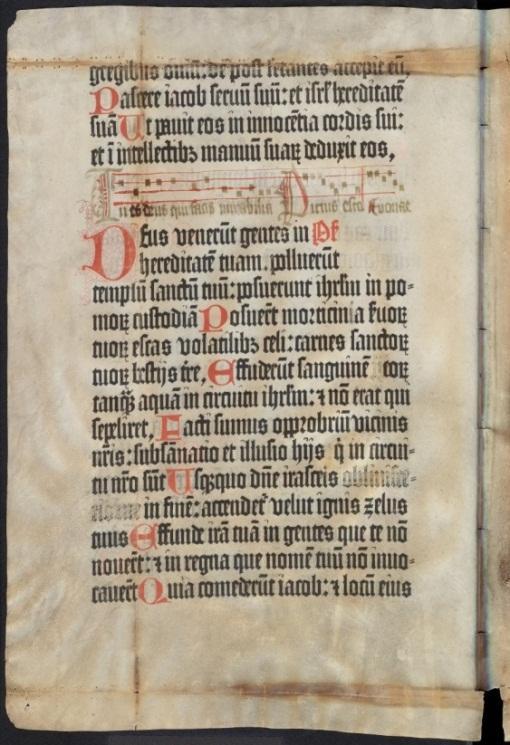 gregibus ouiū: de post fetantes accepit eū,
Pascere iacob seruū suū: et isrl' hereditatē
suā Ut pauit eos in innocētia cordis sui:
et ī intellectibꝫ manuū suaꝝ deduxit eos,
Tu es deus qui facis mirabilia Pitius esto Euouae
Deus venerūt gentes in Ps
hereditatē tuam, polluerūt
templū sanctū tuū: posuerunt ihrlm in po-
moꝝ custodiā Posuert̄ morticinia ẜuoꝝ
tuoꝝ escas volatilibꝫ celi: carnes sanctoꝝ
tuoꝝ bestijs tr̄e, Effuderūt sanguinē eoꝝ
tanq̄ꝫ aquā in circuitu ihrlm: ⁊ nō erat qui
sepeliret, Facti sumus opprobriū vicinis
nr̄is: subsānatio et illusio hijs q̇ in circui-
tu nr̄o sūt Usqꝫquo dn̄e irasceris
in finē: accendet᷑ velut ignis zelus
tuus Effunde irā tuā in gentes que te nō
nouert̄: ⁊ in regna que nomē tuū nō inuo-
cauert̄ Quia comederūt iacob: ⁊ locū eius